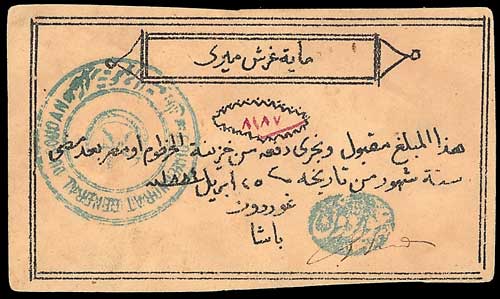 ماية غرش ميرى
٨١٨٧
هذا المبلغ مقبول ويجرى دفعه من خزينة الخرطوم او مصر بعد مضى
ستة شهور من تاريخه ٢٥ ابريل ١٨٨٤
غوردون
باشا
GENERAL DU SOUDAN